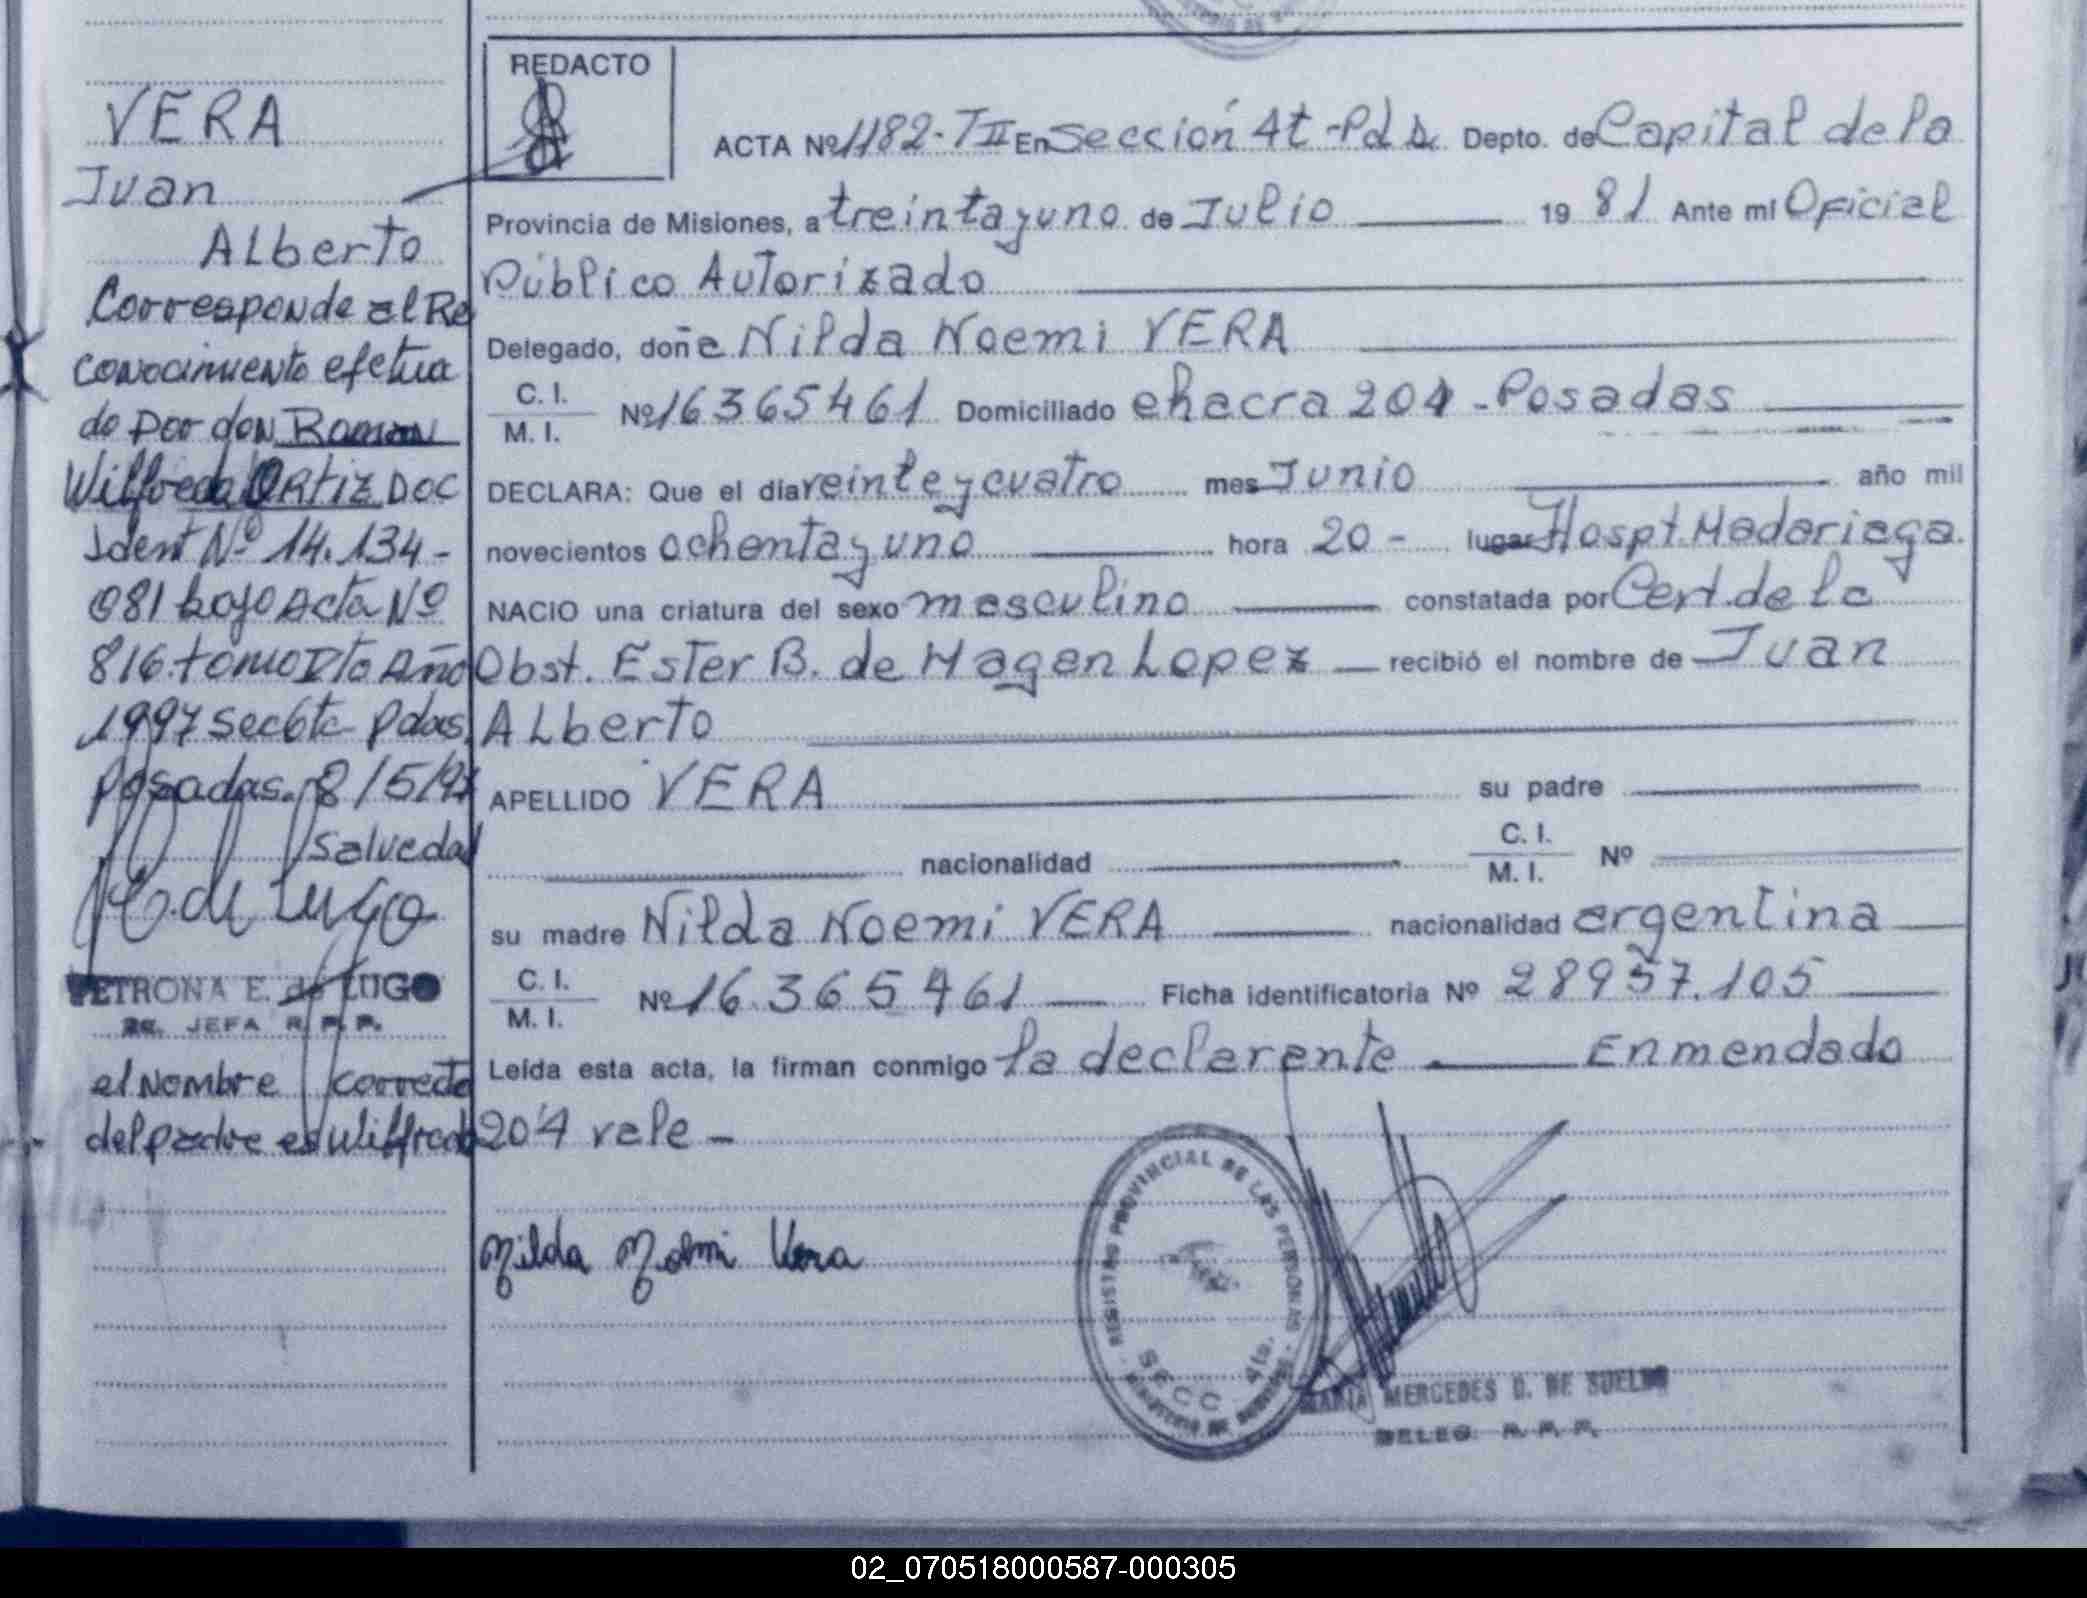 VERA
Juan
Alberto
Corresponde al Re
conocimiento efetua
do por don Ramon
Wilfredo ORTIZ DOC
Ident Nº 14.134-
081 bajo Acta Nº
816 tomo IIto Año
1997 Sec 6ta Pdas.
Posadas. 8/5/97
Salvedad
E. de Lugo
PETRONA E. de LUGO
JEFA R. P. P.
el nombre correcto
del padre es Wilfredo
REDACTO
ACTA Nº 1182-TII En Sección 4t-Pdas Depto. de Capital de la
Provincia de Misiones, a treinta y uno de Julio 19 81 Ante mi Oficial
Público Autorizado
Delegado, doña Nilda Noemi VERA
C. I.
M. I. Nº 16365461 Domiciliado chacra 204 - Posadas
DECLARA: Que el día veinte y cuatro mes Junio año mil
novecientos ochenta y uno hora 20- lugar Hospt. Madariaga.
NACIO una criatura del sexo masculino constatada por Cert. de la
Obst. Ester B. de Hagen Lopez recibió el nombre de Juan
Alberto
APELLIDO VERA su padre
nacionalidad C. I.
M. I. Nº
su madre Nilda Noemi VERA nacionalidad argentina
C. I.
M. I. Nº 16.365461 Ficha identificatoria Nº 28957.105
Leída esta acta, la firman conmigo la declarente Enmendado
204 vale -
Nilda Noemi Vera
REGISTRO PROVINCIAL DE LAS PERSONAS
SECC. 4ta.
MARIA MERCEDES D. DE SUELDO
DELEG. R. P. P.
02_070518000587-000305